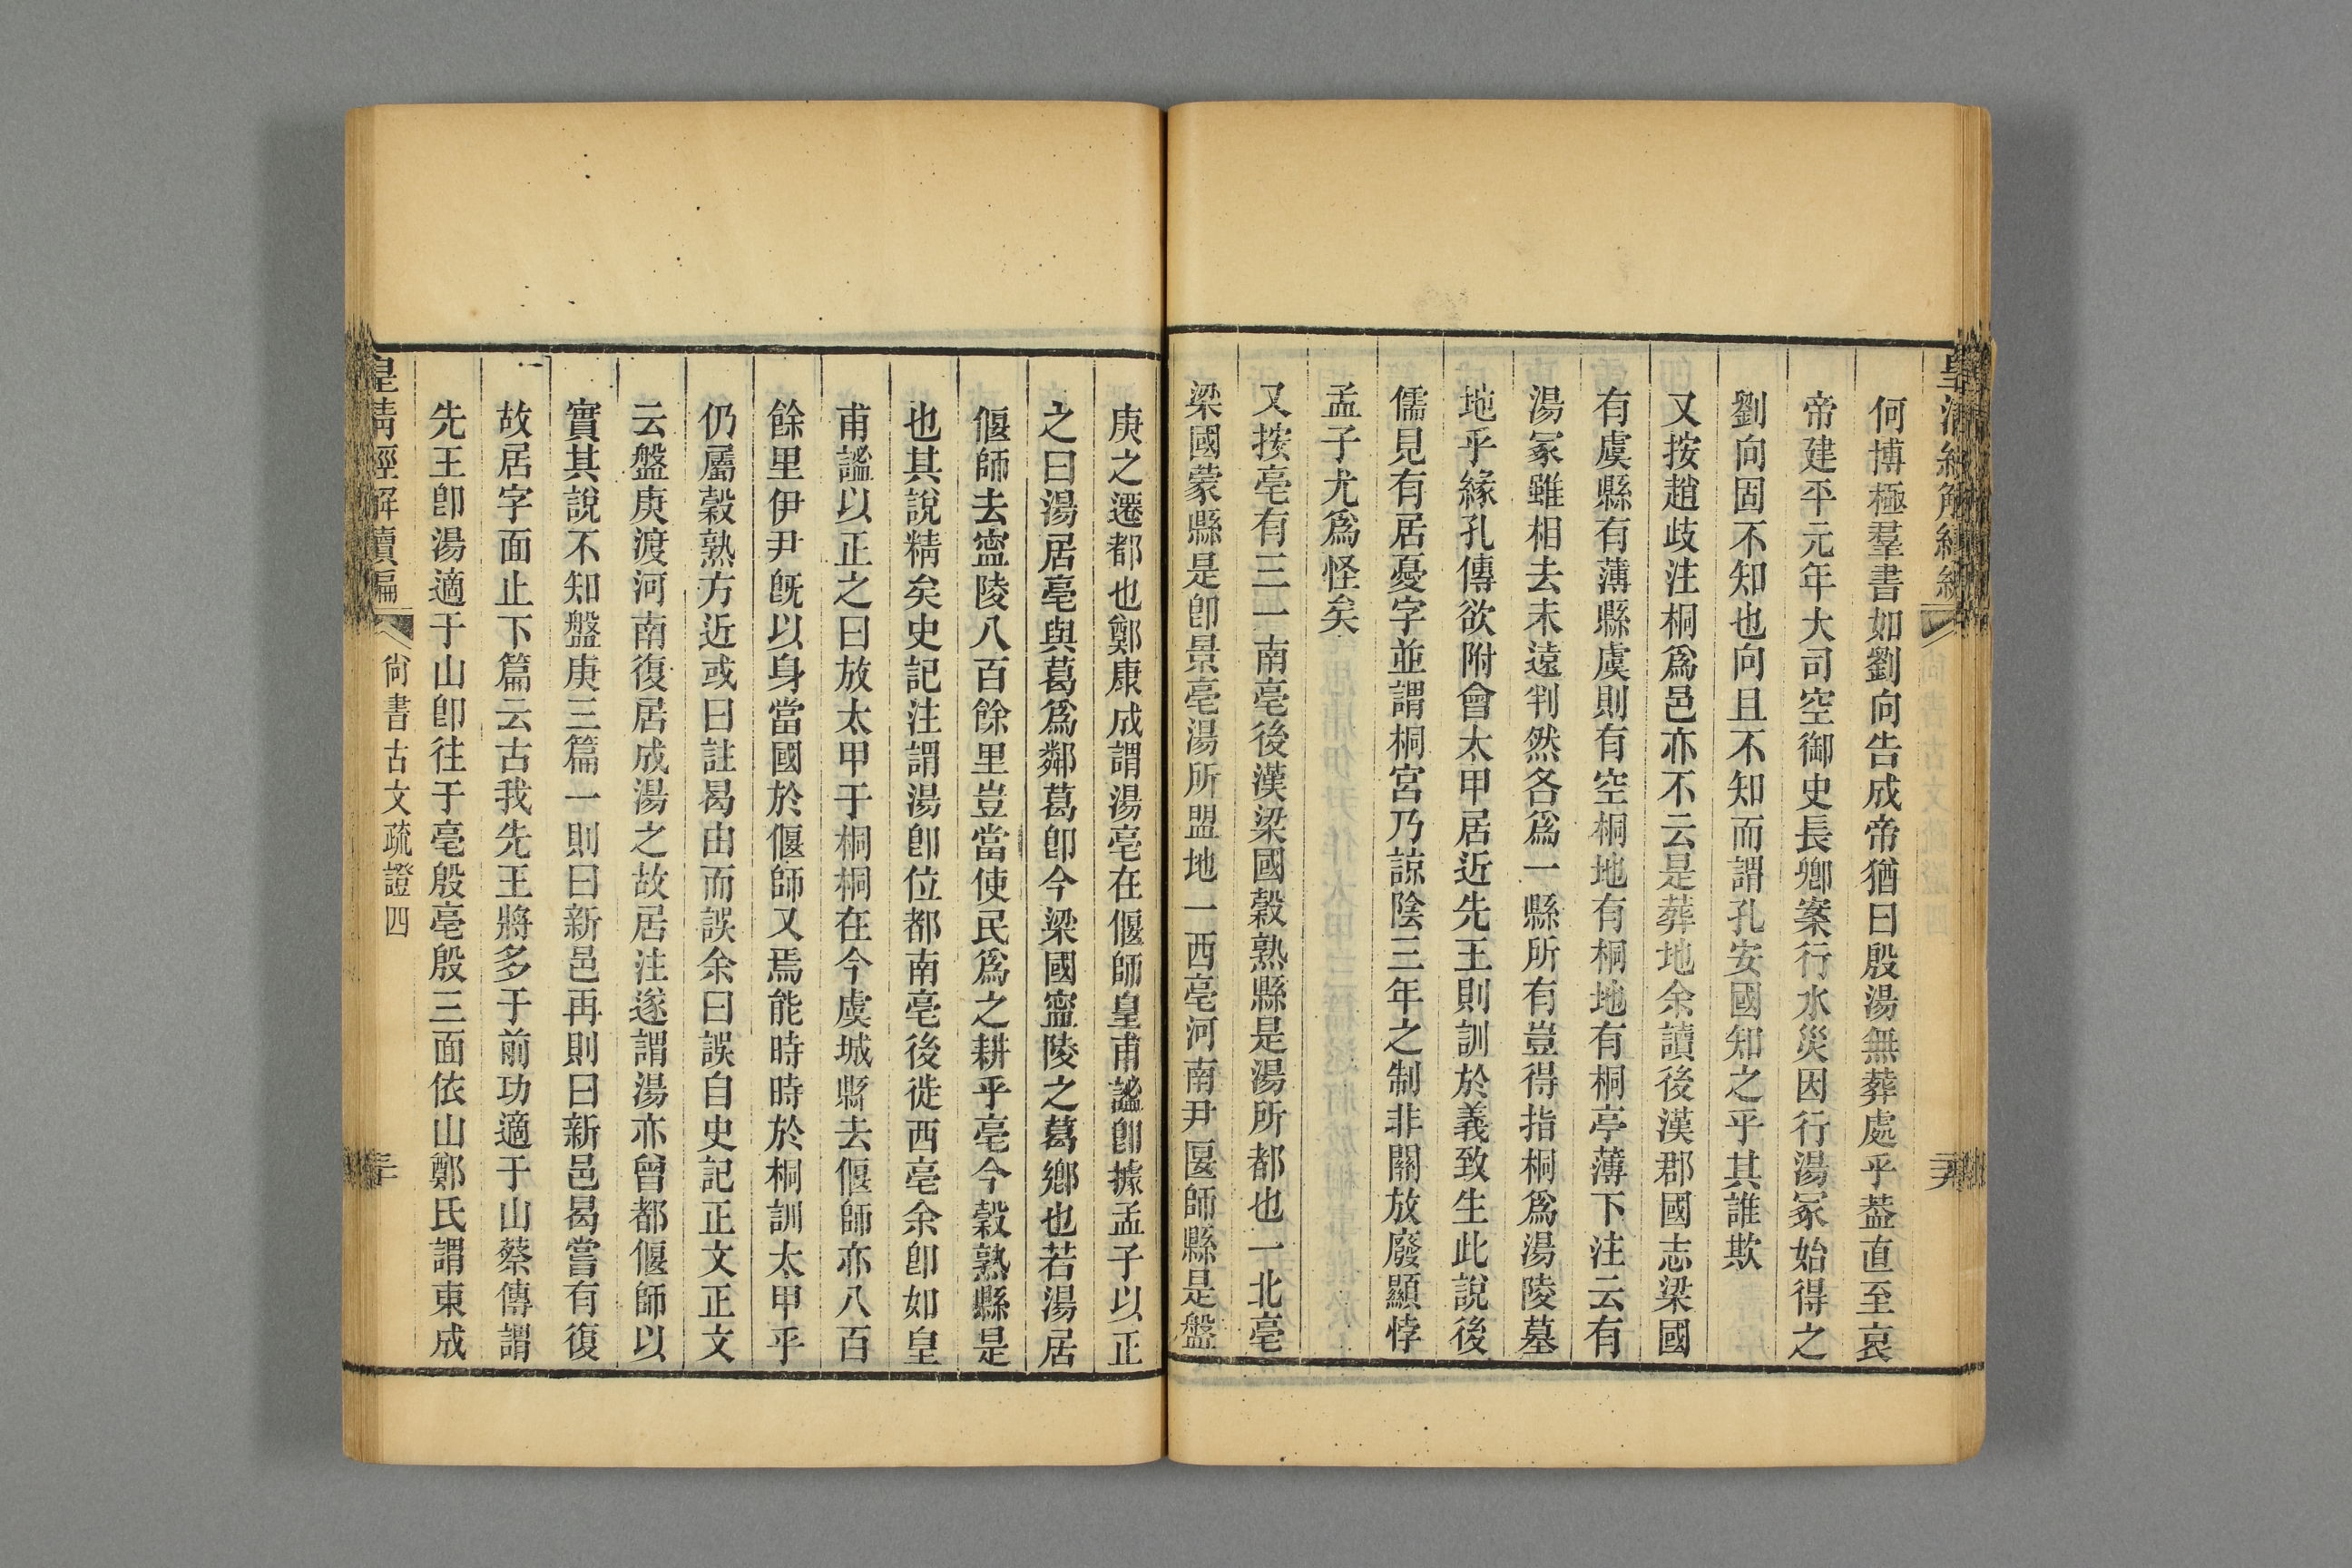 何博極羣書如劉向告成帝猶曰殷湯無葬處乎葢直至哀
帝建平元年大司空御史長卿案行水災因行湯冢始得之
劉向固不知也向且不知而謂孔安國知之乎其誰欺
又按趙歧注桐爲邑亦不云是葬地余讀後漢郡國志梁國
有虞縣有薄縣虞則有空桐地有桐地有桐亭薄下注云有
湯冢雖相去未遠判然各爲一縣所有豈得指桐爲湯陵墓
地乎緣孔傳欲附會太甲居近先王則訓於義致生此說後
儒見有居憂字並謂桐宮乃諒陰三年之制非關放廢顯悖
孟子尤爲怪矣
又按亳有三一南亳後漢梁國穀熟縣是湯所都也一北亳
梁國蒙縣是卽景亳湯所盟地一西亳河南尹偃師縣是盤
庚之遷都也鄭康成謂湯亳在偃師皇甫謐卽據孟子以正
之曰湯居亳與葛爲鄰葛卽今梁國寧陵之葛鄉也若湯居
偃師去寧陵八百餘里豈當使民爲之耕乎亳今穀熟縣是
也其說精矣史記注謂湯卽位都南亳後徙西亳余卽如皇
甫謐以正之曰放太甲于桐桐在今虞城縣去偃師亦八百
餘里伊尹旣以身當國於偃師又焉能時時於桐訓太甲乎
仍屬穀熟方近或曰註曷由而誤余曰誤自史記正文正文
云盤庚渡河南復居成湯之故居注遂謂湯亦曾都偃師以
實其說不知盤庚三篇一則曰新邑再則曰新邑曷嘗有復
故居字面止下篇云古我先王將多于前功適于山蔡傳謂
先王卽湯適于山卽往于亳殷亳殷三面依山鄭氏謂東成
皇清經解續編
尙書古文疏證四